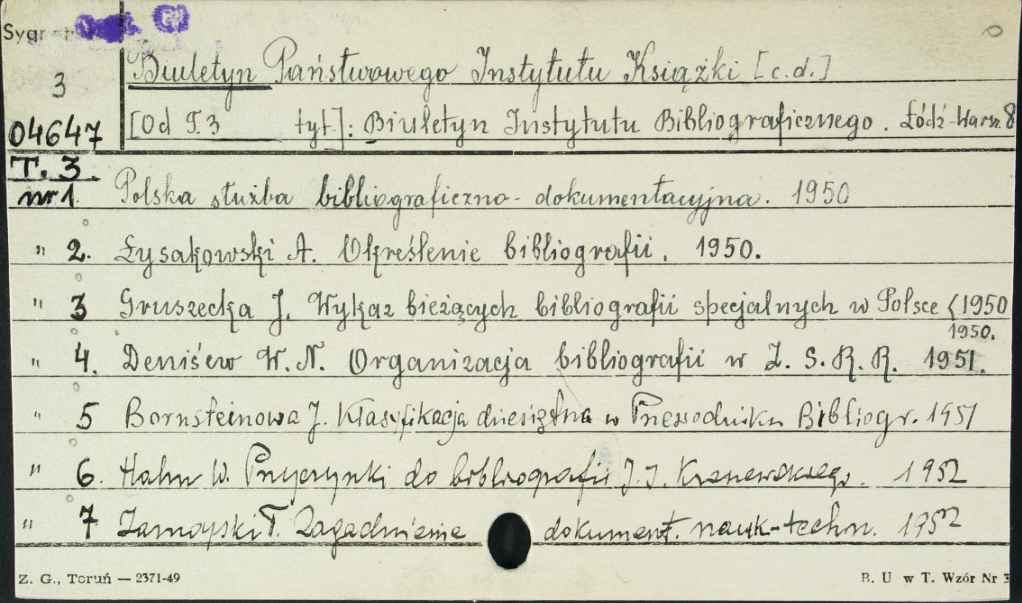 Sygn
3
Biuletyn Państwowego Instytutu Książki [c.d.]
04647
[Od T. 3 tyt.]: Biuletyn Instytutu Bibliograficznego. Łódź-Warsz. 8
T. 3.
nr 1. Polska służba bibliograficzno-dokumentacyjna. 1950
" 2. Łysakowski A. Określenie bibliografii. 1950.
" 3 Gruszecka J. Wykaz bieżących bibliografii specjalnych w Polsce (1950
1950.
" 4. Deniśew W. N. Organizacja bibliografii w Z. S. R. R. 1951.
" 5 Bornsteinowa J. Klasyfikacja dziesiętna w Przewodniku Bibliogr. 1951
" 6. Hahn W. Przyczynki do bibliografii J. I. Kraszewskiego. 1952
" 7 Zamoyski T. Zagadnienie dokument. nauk-techn. 1952
Z. G., Toruń — 2371-49
B. U w T. Wzór Nr 3